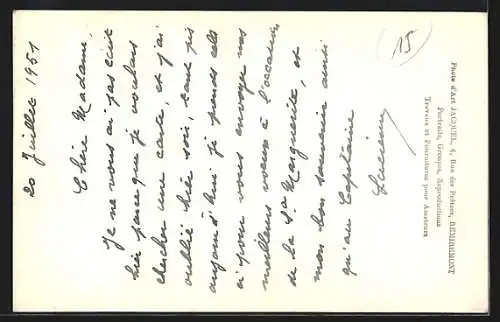 20 Juillet 1951
Chère Madame,
Je ne vous ai pas écrit
hier parce que je voulais
chercher une carte, et j'ai
oublié hier soir, tant pis
aujourd'hui je prends cela
ci pour vous envoyer nos
meilleurs voeux à l'occasion
de la Ste Marguerite, et
mon bon souvenir ainsi
qu'au Capitaine
15
Photo d'Art JACQUEL, 4, Rue des Prêtres, REMIREMONT
Portraits, Groupes, Reproductions
Travaux et Fournitures pour Amateurs